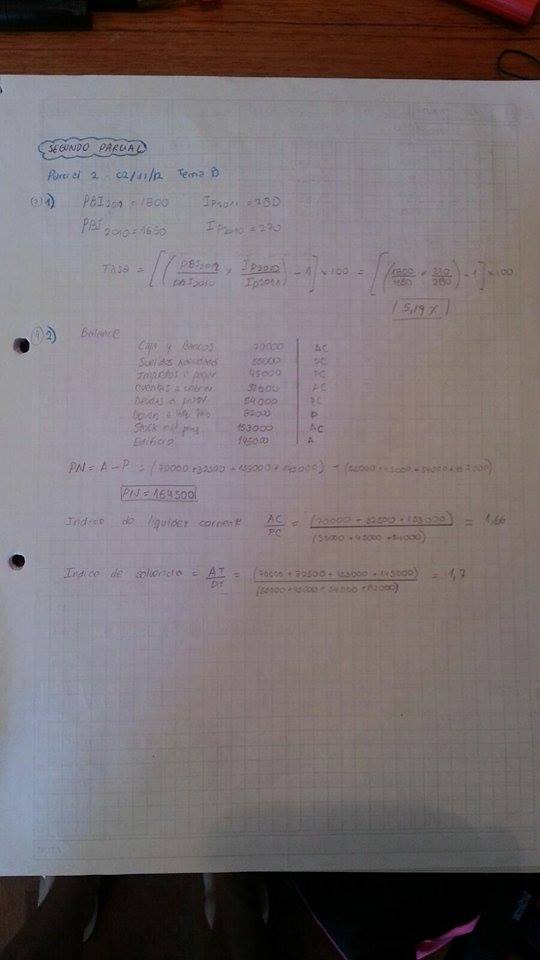 SEGUNDO PARCIAL
Parcial 2 - 02/11/12 Tema B
1) PBI 2011 = 1800 IP2011 = 280
PBI 2010 = 1650 IP2010 = 270
Tasa = [(PBI2011/PBI2010 x IP2010/IP2011) - 1] x 100 = [(1800/1650 x 270/280) - 1] x 100
5,19 %
2) Balance
Caja y Bancos 70000 AC
Sueldos 55000 PC
Impuestos a pagar 45000 PC
Cuentas a cobrar 32500 AC
Deudas a pagar 54000 PC
Deudas a largo 82000 P
Stock mat prima 153000 AC
Edificio 145000 A
PN = A - P = (70000 + 32500 + 153000 + 145000) - (55000 + 45000 + 54000 + 82000)
PN = 164500
Indice de liquidez corriente AC/PC = (70000 + 32500 + 153000)/(55000 + 45000 + 54000) = 1,66
Indice de solvencia = AT/DT = (70000 + 32500 + 153000 + 145000)/(55000 + 45000 + 54000 + 82000) = 1,7